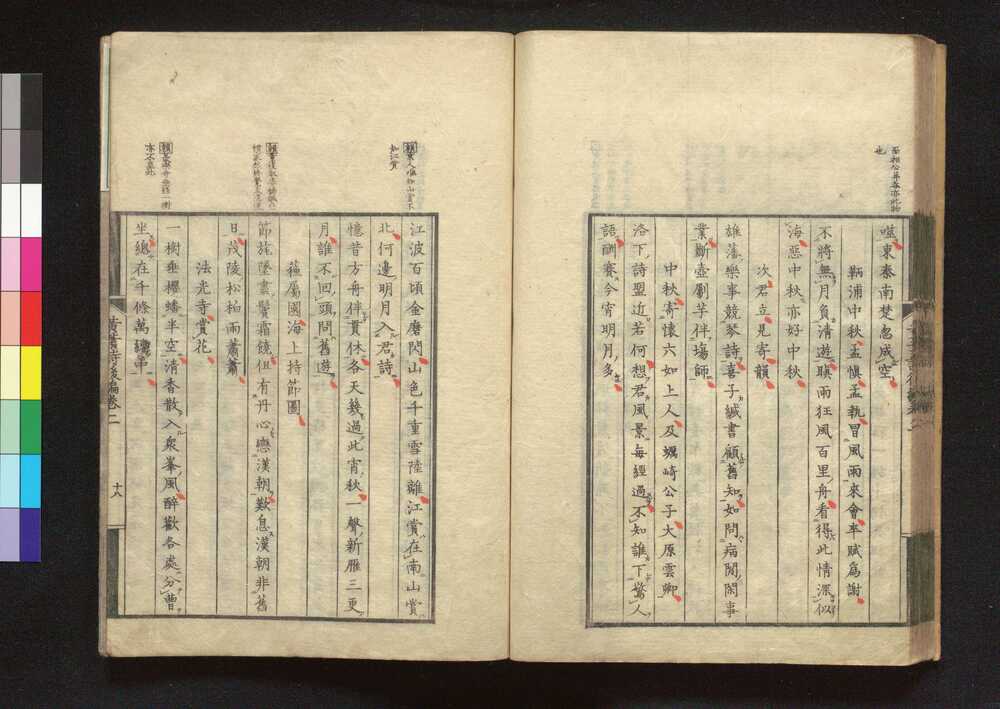 噬東秦南楚忽成空
鞆浦中秋孟慎孟執冒風雨來會率賦爲謝
不將無月負清遊聵雨狂風百里舟看得此情深似
海惡中秋亦好中秋
次君立見寄韻
雄藩樂事競琴詩喜子緘書顧舊知如問病閒閑事
業斷壺劚芋伴場師
中秋寄懷六如上人及蠣崎公子大原雲卿
洛下詩盟近若何想君風景每經過不知誰下驚人
語酬賽今宵明月多
江波百頃金磨閃山色千重雪陸離江賞在南山賞
北何邊明月入君詩
憶昔方舟伴貫休各天幾過此宵秋一聲新雁三更
月誰不回頭問舊遊
蘓屬國海上持節圖
節旄墮盡鬢霜饒但有丹心戀漢朝歎息漢朝非舊
日茂陵松柏雨蕭蕭
法光寺賞花
一樹垂櫻蟠半空清香散入泉峯風醉歡各處分曹
坐總在千條萬縷中
黃葉詩後編卷二
十八